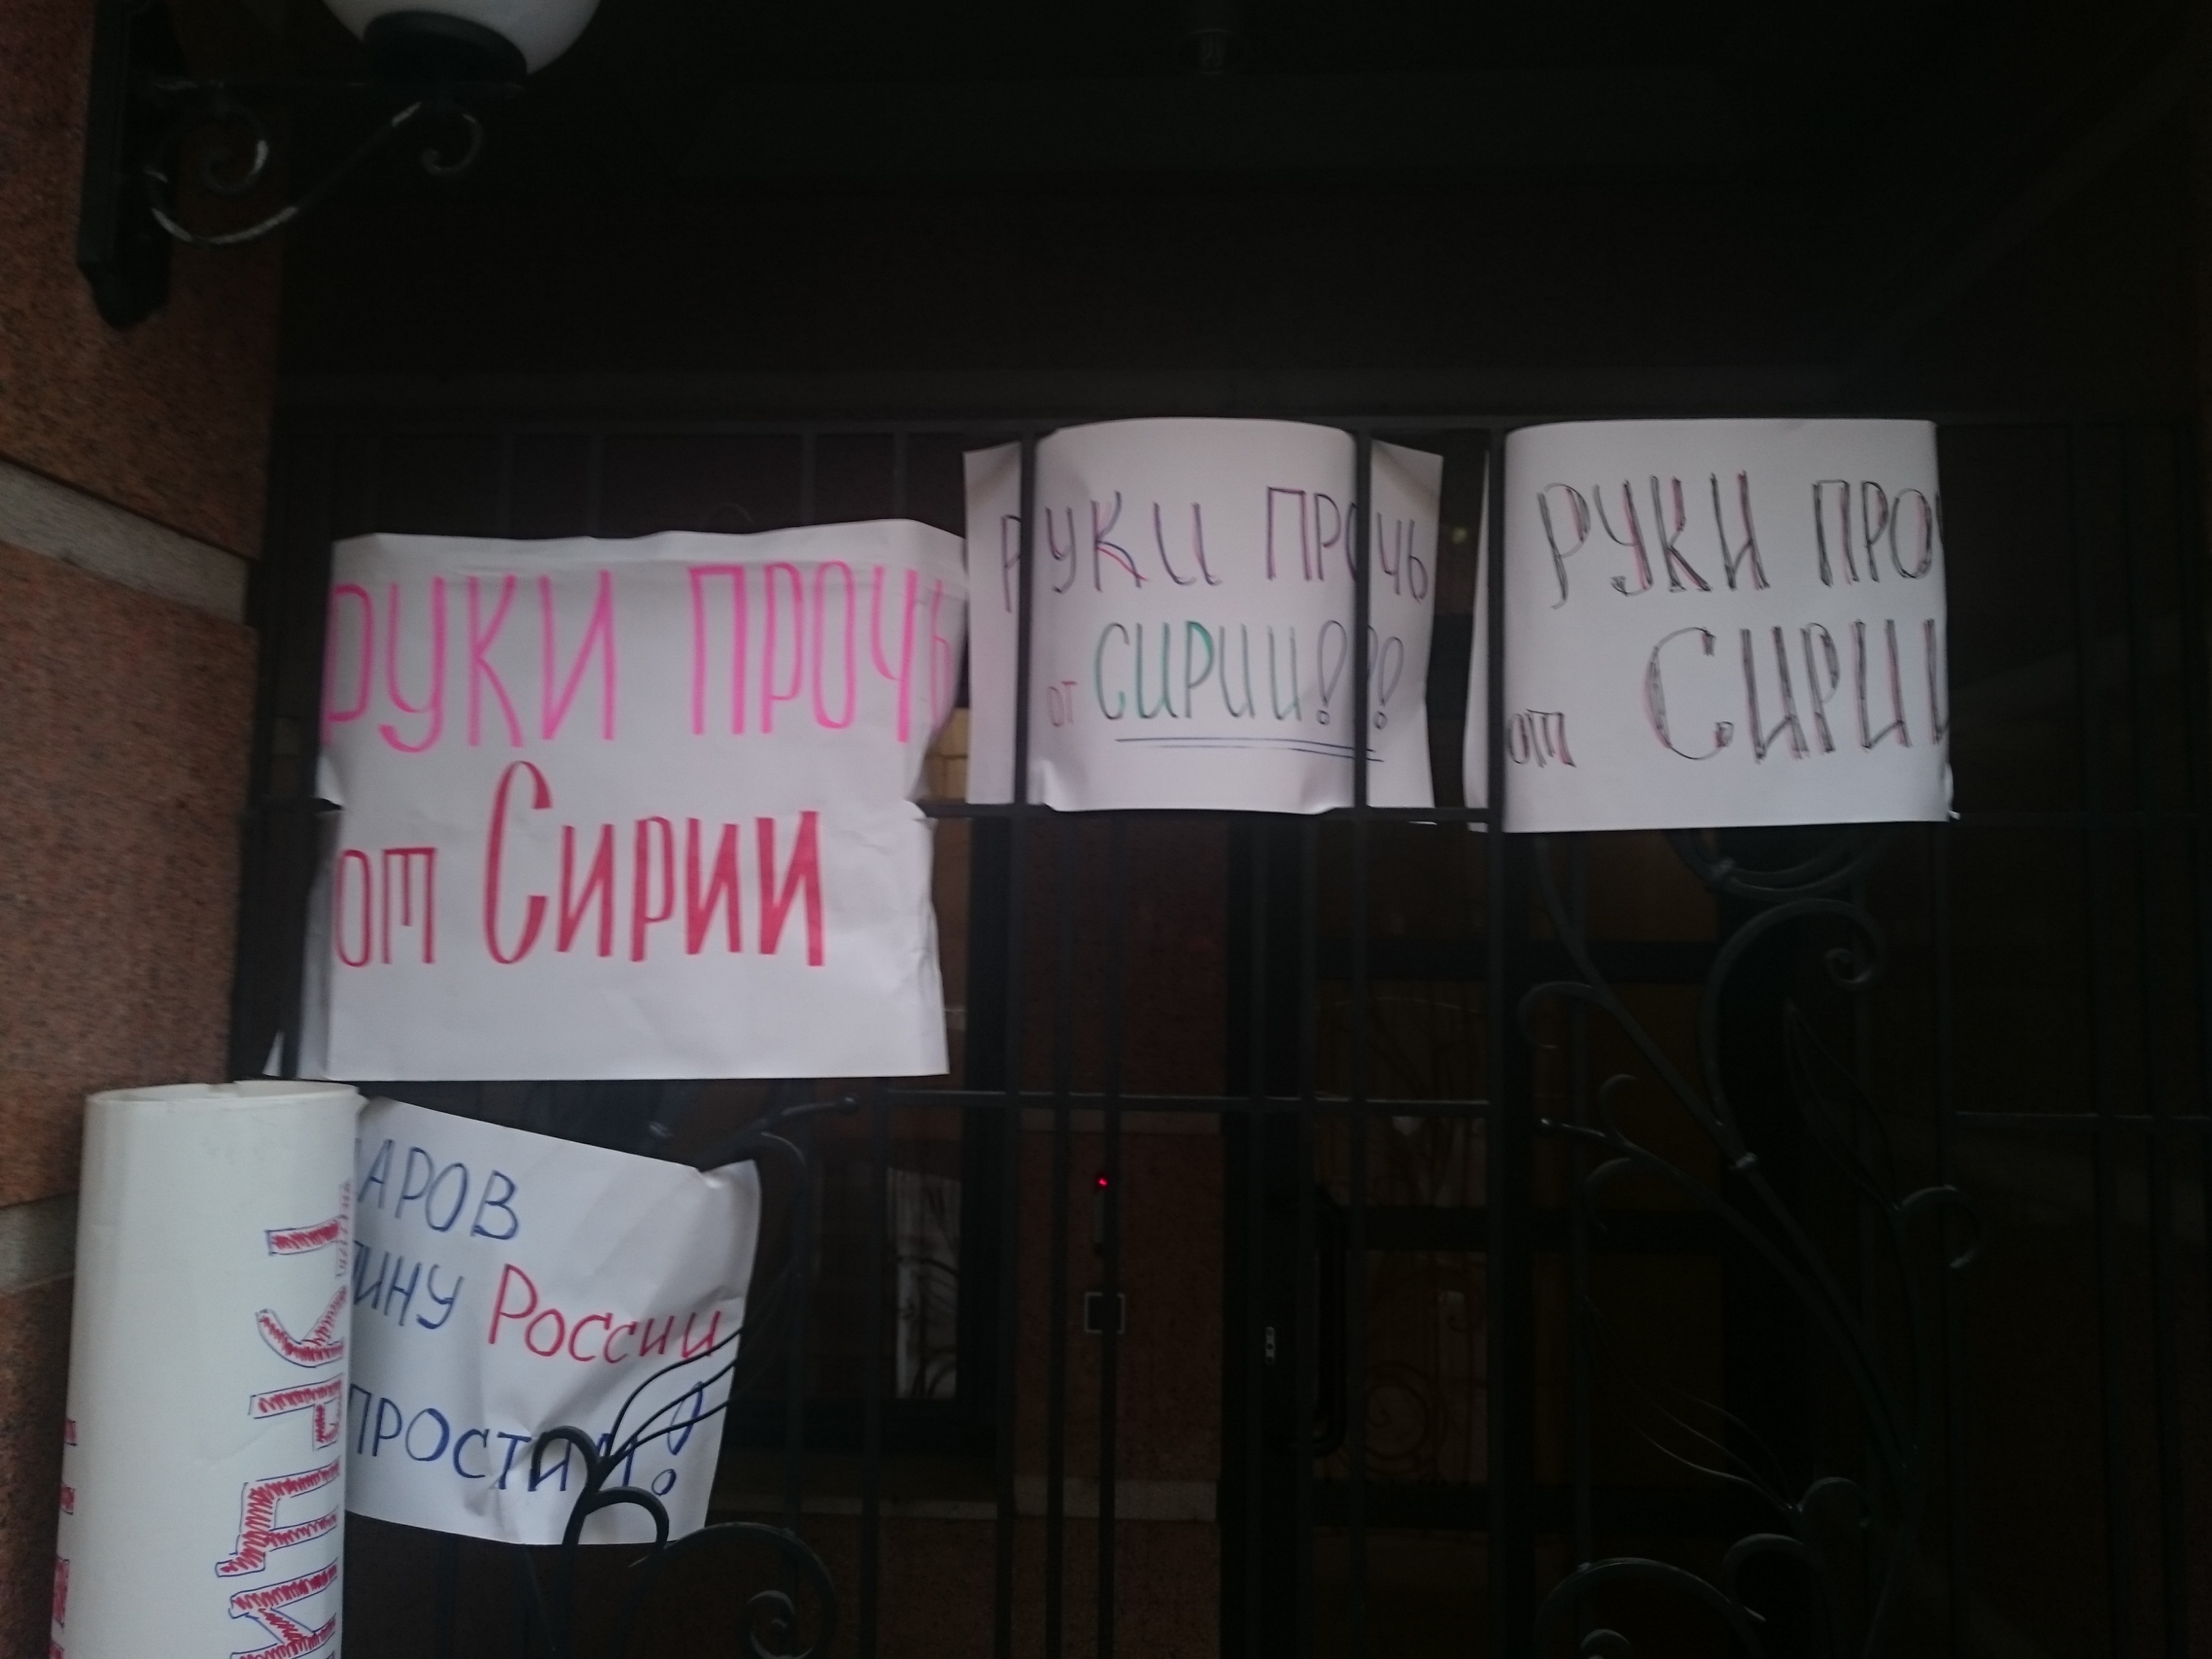 РУКИ ПРОЧЬ
от Сирии
РУКИ ПРОЧЬ
от СИРИИ!!!
РУКИ ПРО
от СИРИИ
АРОВ
ИНУ России
ПРОСТИМ!